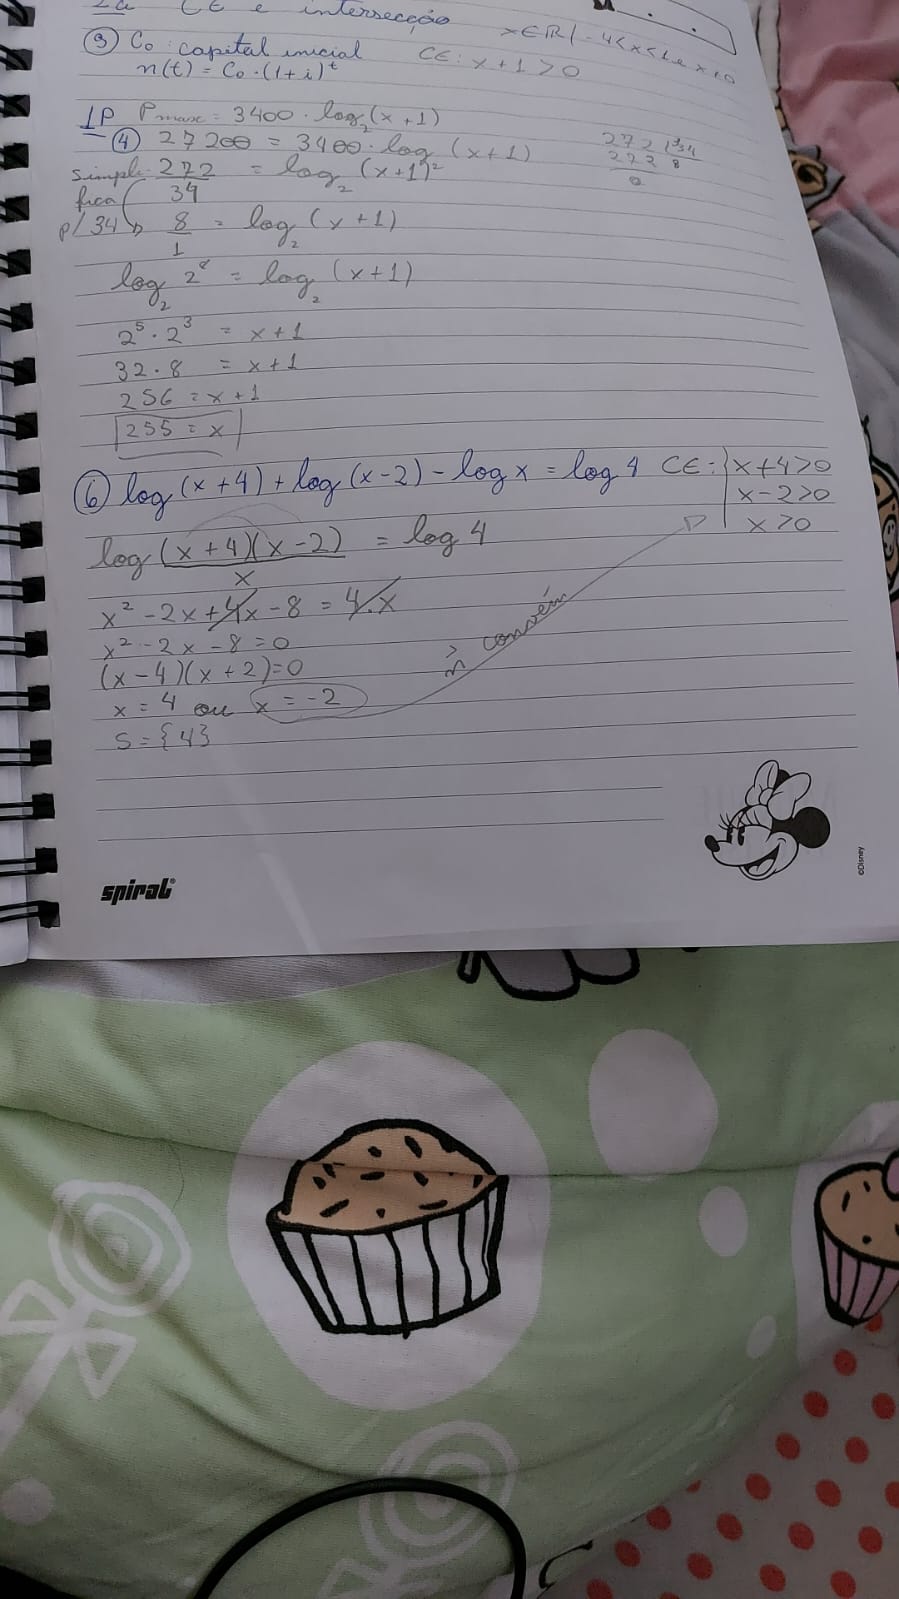 CE e intersecção
x ∈ IR / -4 < x < 1 e x ≠ 0
③ Co: capital inicial
CE: x + 1 > 0
n(t) = Co · (1 + i)^t
1P P maxx = 3400 · log₂(x + 1)
④ 27200 = 3400 · log₂(x + 1)
272 |34
272 8
0
simpli- 272/34 = log₂(x + 1)
fica
p/ 34 8/1 = log₂(x + 1)
log₂ 2⁸ = log₂(x + 1)
2⁵ · 2³ = x + 1
32 · 8 = x + 1
256 = x + 1
255 = x
⑥ log(x + 4) + log(x - 2) - log x = log 4 CE: x + 4 > 0
x - 2 > 0
x > 0
log (x + 4)(x - 2)/x = log 4
x² - 2x + 4x - 8 = 4.x
x² - 2x - 8 = 0
(x - 4)(x + 2) = 0
x = 4 ou x = -2
ñ convém
S = {4}
spiral®
©Disney